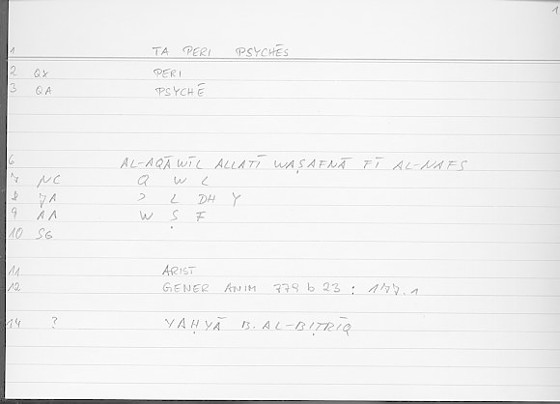 1
1 TA PERI PSYCHĒS
2 QX PERI
3 QA PSYCHĒ
6 AL-AQĀWĪL ALLATĪ WAṢAFNĀ FĪ AL-NAFS
7 NC Q W L
8 JA > L DH Y
9 AA W Ṣ F
10 SG
11 ARIST
12 GENER ANIM 779 b 23 : 177.1
14 ? YAḤYĀ B. AL-BIṬRĪQ